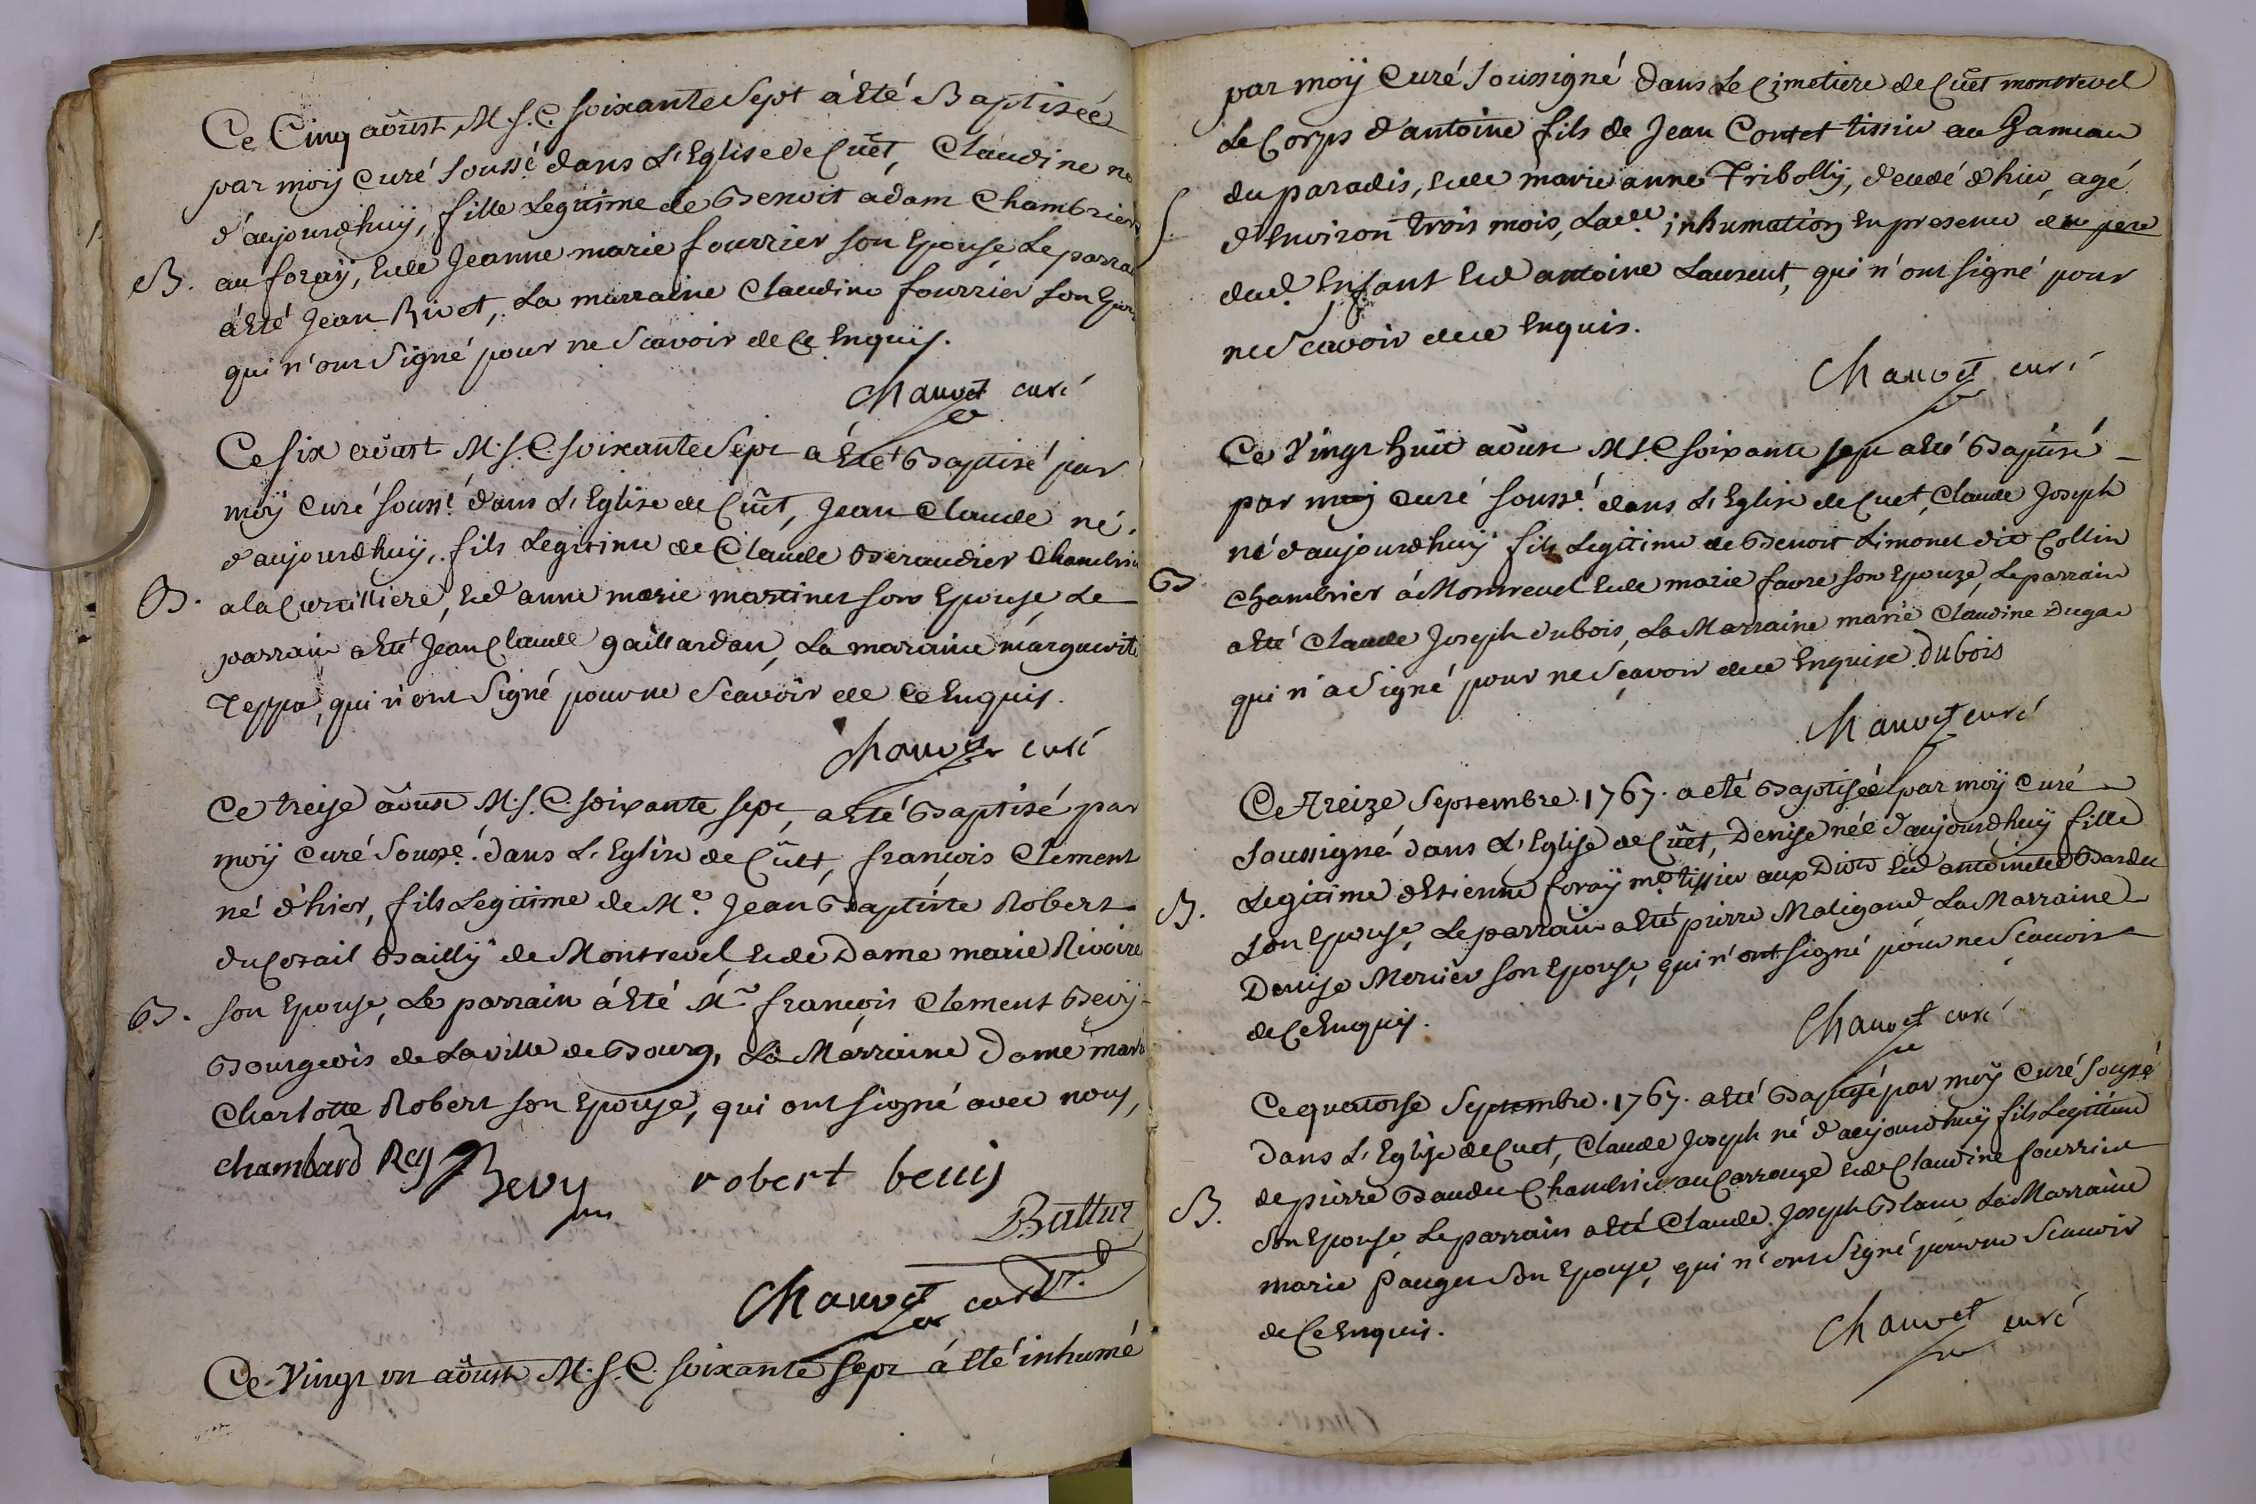 Ce Cinq aoûst M.S.C. soixante Sept à Eté Baptisée
par moÿ Curé Soussé dans L'Eglise de Cuet, Claudine né
d'aujourdhuÿ, fille Legitime de Benoit adam Chambrier
B. au foraÿ, Et de Jeanne marie fourrier son Epouse, Le parrain
à Eté Jean Rivet, La marraine Claudine fourrier son
qui n'ont Signé pour ne Scavoir de Ce Enquis.
Chauvet curé
Ce six aoûst M.S.C. soixante Sept a Eté Baptisé par
moÿ Curé Soussé dans L'Eglise de Cuet, Jean Claude né
d'aujourdhuÿ, fils Legitime de Claude Beraudier Chambrier
B. a la Curtilliere, Et d'anne marie martinet son Epouse, Le
parrain a Eté Jean Claude gaillardan, La maraine marguerite
Teppa, qui n'ont Signé pour ne Scavoir de Ce Enquis.
Chauvet curé
Ce treise aoûst M.S.C. soixante sept, a Eté Baptisé par
moÿ Curé Soussé dans L'Eglise de Cuet, françois Clement
né d'hier, fils Legitime de Me. Jean Baptiste Robert
du Corail Bailly de Montrevel Et de Dame marie Rivoire
B. son Epouse, Le parrain à Eté Mr. françois Clement Bevÿ
Bourgeois de La ville de Bourg, La Marraine Dame marie
Charlotte Robert son Epouse, qui ont signé avec nous,
chambard Rey Bevy robert beuis
Buttur
Chauvet curé
Ce Vingt un aoûst M.S.C. soixante Sept à Eté inhumé
par moÿ Curé Soussigné dans Le Cimetiere de Cuet montrevel
Le Corps d'antoine fils de Jean Contet tissier au hameau
du paradis, Et de marie anne Tribolly, decedé d'hier, agé
S. d'Environ trois mois, Lade. inhumation En presence du pere
dud. Enfant Et d'antoine Laurent, qui n'ont signé pour
ne Scavoir de ce Enquis.
Chauvet curé
Ce Vingt huit aoûst M.S.C soixante sept a Eté Baptisé
par moÿ Curé Soussé dans L'Eglise de Cuet, Claude Joseph
né d'aujourdhuÿ fils Legitime de Benoit Limonet dit Collin
B chambrier à Montrevel Et de marie favre son Epouze, Le parrain
a Eté Claude Joseph dubois, La Marraine marie Claudine
qui n'a Signé pour ne Sçavoir de ce Enquise. dubois
Chauvet curé
Ce Treize Septembre. 1767. a eté Baptisée par moÿ Curé
Soussigné dans L'Eglise de Cuet, Denise née d'aujourdhuÿ fille
Legitime d'Etienne foraÿ me tissier aux Dious Et d'antoinette Bardet
B. son Epouse, Le parrain a Eté pierre Maligaud La Marraine
Denise Mercier son Epouse, qui n'ont signé pour ne Scavoir
de Ce Enquis.
Chauvet curé
Ce quatorse Septembre. 1767. a Eté Baptisé par moÿ Curé Soussé
dans L'Eglise de Cuet, Claude Joseph né d'aujourdhuÿ fils Legitime
de pierre Baudet Chambrier au Carrouge Et de Claudine fourrier
B. son Epouse, Le parrain a Eté Claude Joseph Blanc La Marraine
marie Pauget son Epouse, qui n'ont Signé pour ne Scavoir
de Ce Enquis.
Chauvet curé